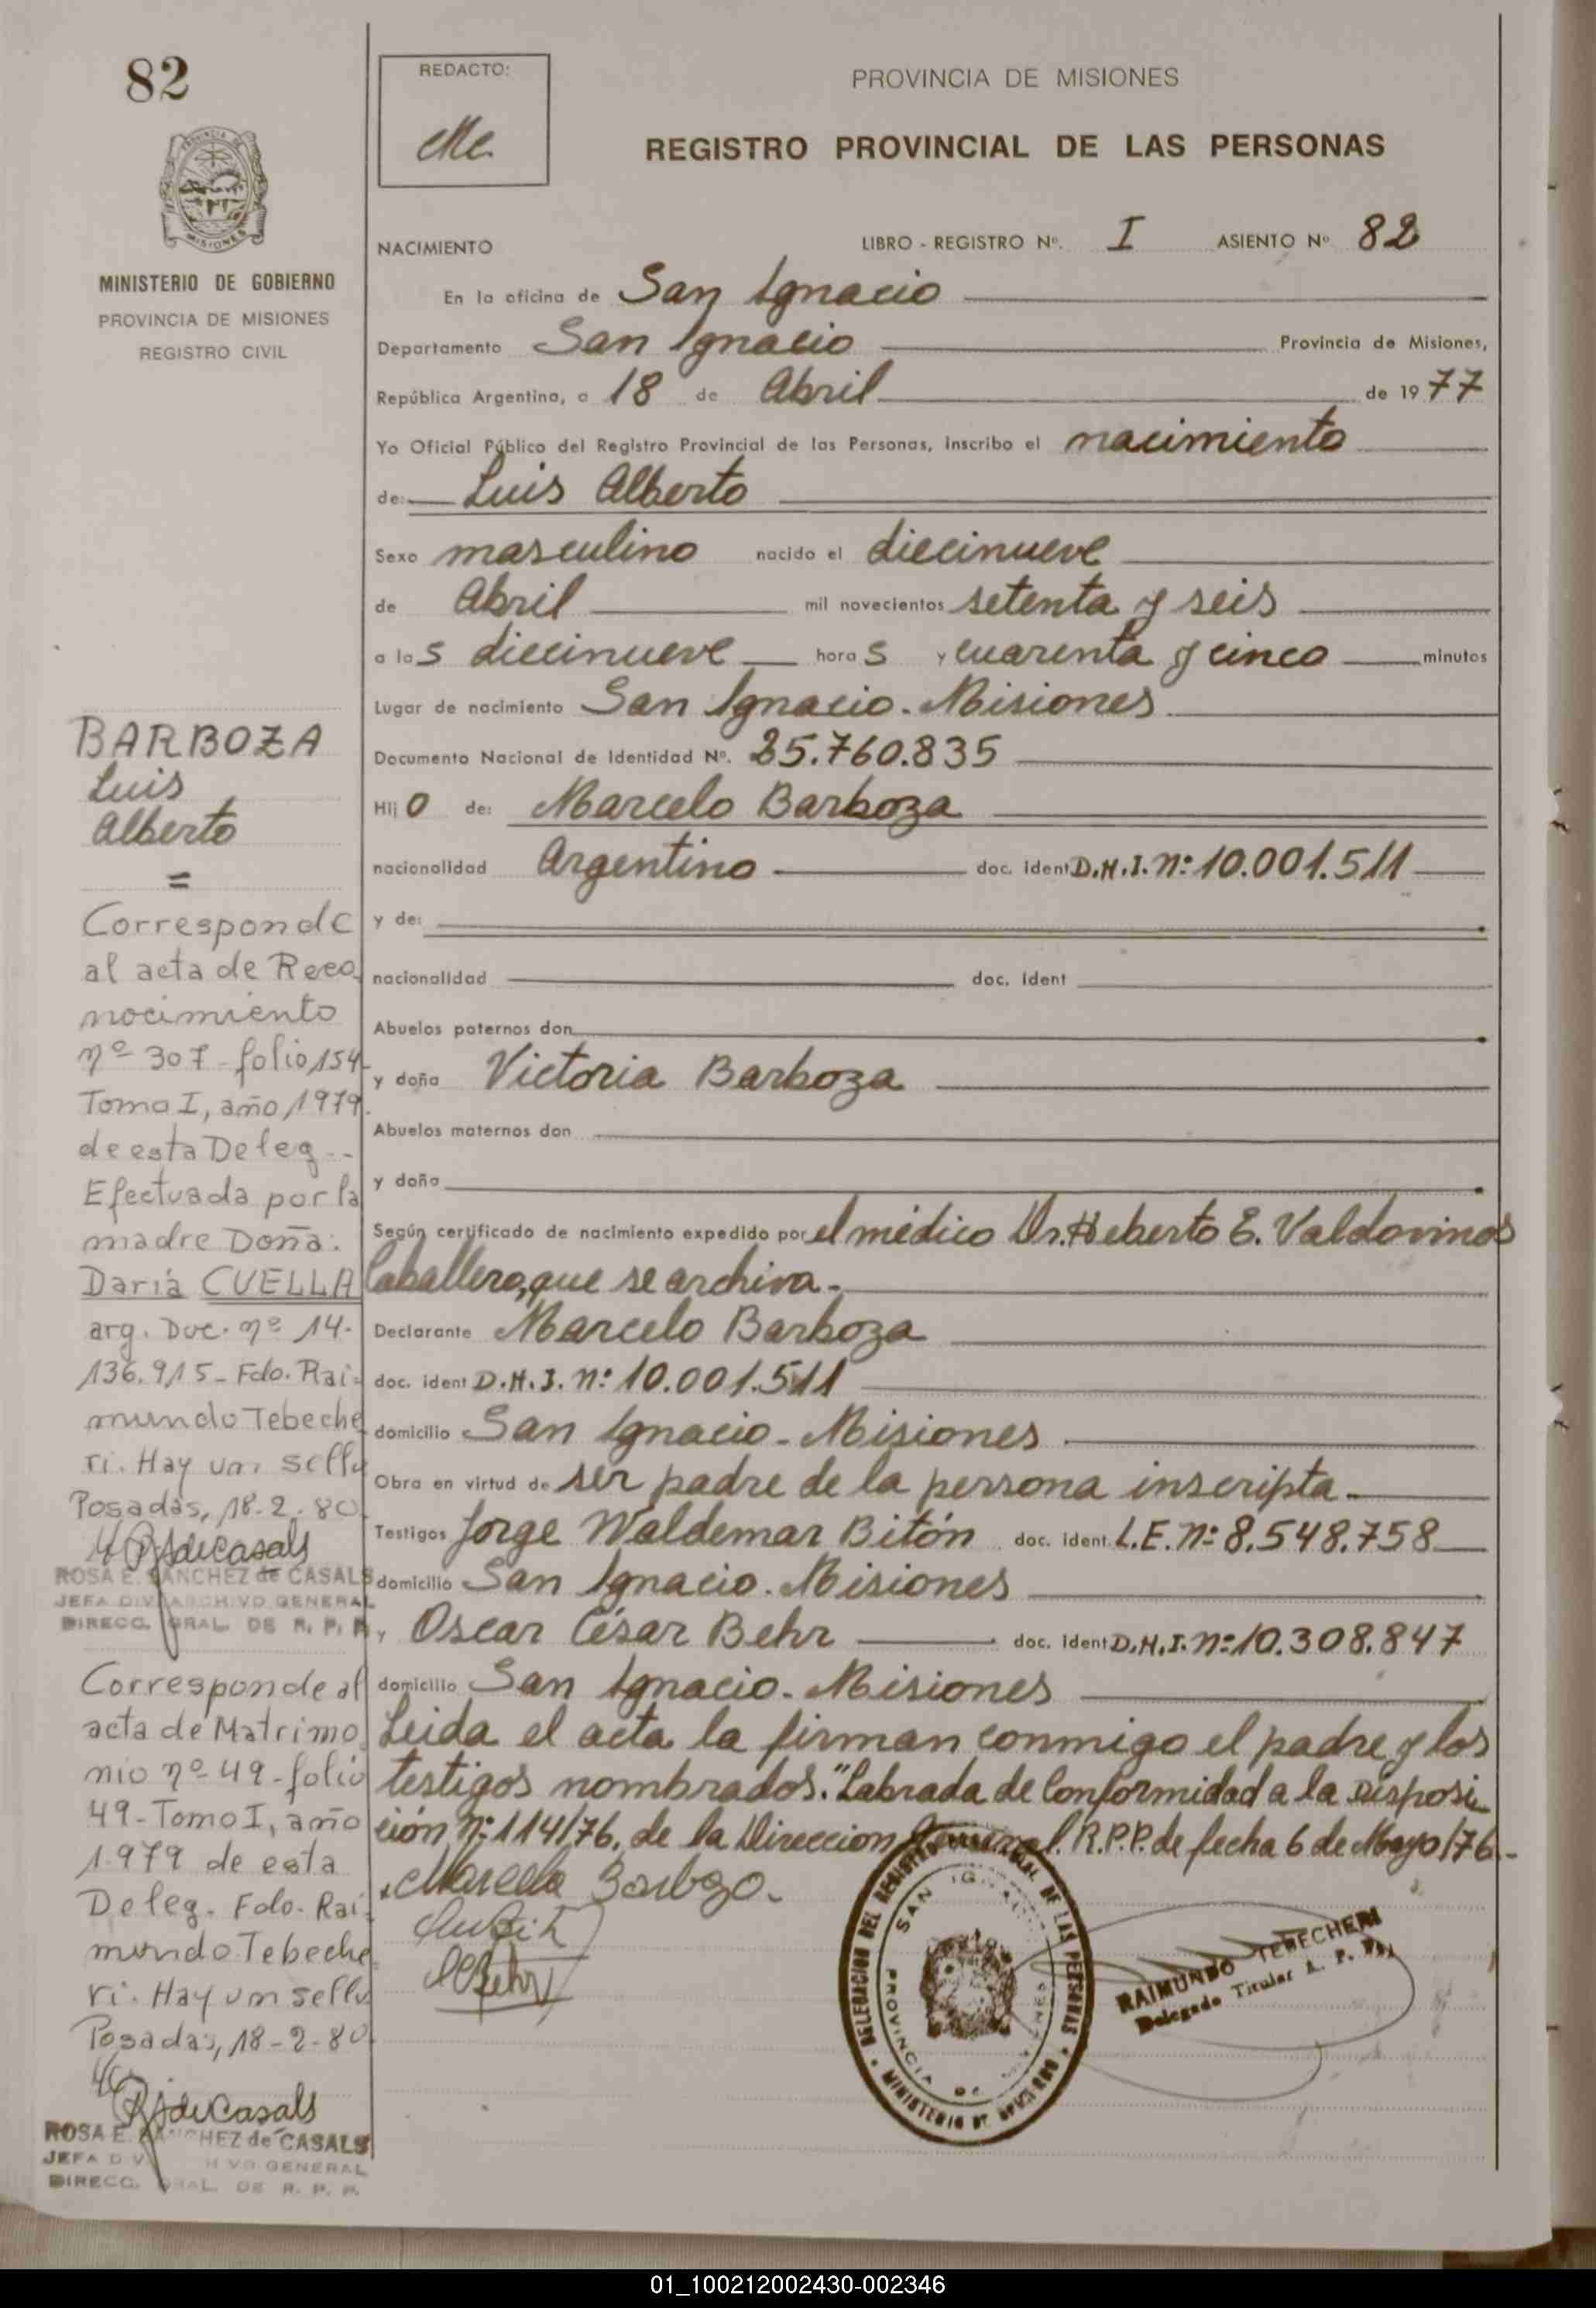 82
MINISTERIO DE GOBIERNO
PROVINCIA DE MISIONES
REGISTRO CIVIL
REDACTO:
PROVINCIA DE MISIONES
REGISTRO PROVINCIAL DE LAS PERSONAS
NACIMIENTO LIBRO - REGISTRO Nº. I ASIENTO Nº 82
En la oficina de San Ignacio
Departamento San Ignacio Provincia de Misiones,
República Argentina, a 18 de Abril de 1977
Yo Oficial Público del Registro Provincial de las Personas, inscribo el nacimiento
de: Luis Alberto
Sexo masculino nacido el diecinueve
de Abril mil novecientos setenta y seis
a las diecinueve horas y cuarenta y cinco minutos
Lugar de nacimiento San Ignacio - Misiones
Documento Nacional de Identidad Nº. 25.760.835
Hijo de: Marcelo Barboza
nacionalidad Argentino doc. ident D.N.I. Nº: 10.001.511
y de:
nacionalidad doc. ident
Abuelos paternos don
y doña Victoria Barboza
Abuelos maternos don
y doña
Según certificado de nacimiento expedido por el médico Dr. Heberto E. Valdovinos
Caballero, que se archiva.-
Declarante Marcelo Barboza
doc. ident D.N.I. nº: 10.001.511
domicilio San Ignacio - Misiones
Obra en virtud de ser padre de la persona inscripta.-
Testigos Jorge Waldemar Bitón doc. ident. L.E. nº: 8.548.758
domicilio San Ignacio - Misiones
y Oscar César Behr doc. ident D.N.I. nº: 10.308.847
domicilio San Ignacio - Misiones
Leida el acta la firman conmigo el padre y los
testigos nombrados. "Labrada de Conformidad a la Disposi
ción nº: 114/76, de la Direccion General. R.P.P. de fecha 6 de Mayo/76.-
Marcelo Barboza.
DELEGACION DEL REGISTRO PROVINCIAL DE LAS PERSONAS
MINISTERIO DE GOBIERNO
SAN IGNACIO
PROVINCIA DE MISIONES
RAIMUNDO TEBECHERI
Delegado Titular R. P. P.
BARBOZA
Luis
Alberto
=
Corresponde
al acta de Reco
nocimiento
nº 307 - folio 154
Tomo I, año 1979.
de esta Deleg.-
Efectuada por la
madre Doña:
Daria CUELLA
arg. Doc. nº 14.
136.915 - Fdo. Rai-
mundo Tebeche
ri. Hay un sello
Posadas, 18.2.80
RSdeCasals
ROSA E. SANCHEZ de CASALS
JEFA DIV ARCHIVO GENERAL
DIRECC. GRAL. DE R. P. P.
Corresponde al
acta de Matrimo
nio nº 49 - folio
49 - Tomo I, año
1.979 de esta
Deleg. Fdo. Rai-
mundo Tebeche
ri. Hay un sello
Posadas, 18-2-80
RSdeCasals
ROSA E. SANCHEZ de CASALS
JEFA DIV ARCHIVO GENERAL
DIRECC. GRAL. DE R. P. P.
01_100212002430-002346